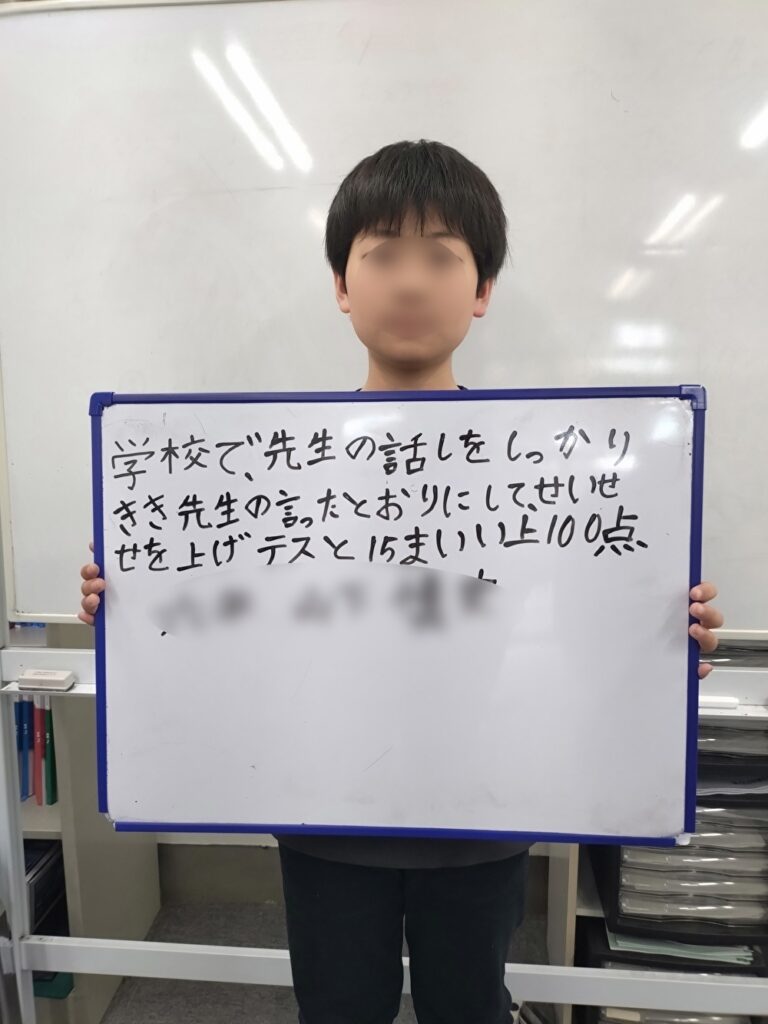 学校で、先生の話しをしっかり
きき先生の言ったとおりにして、せいせ
せを上げテスと15まいい上100点、